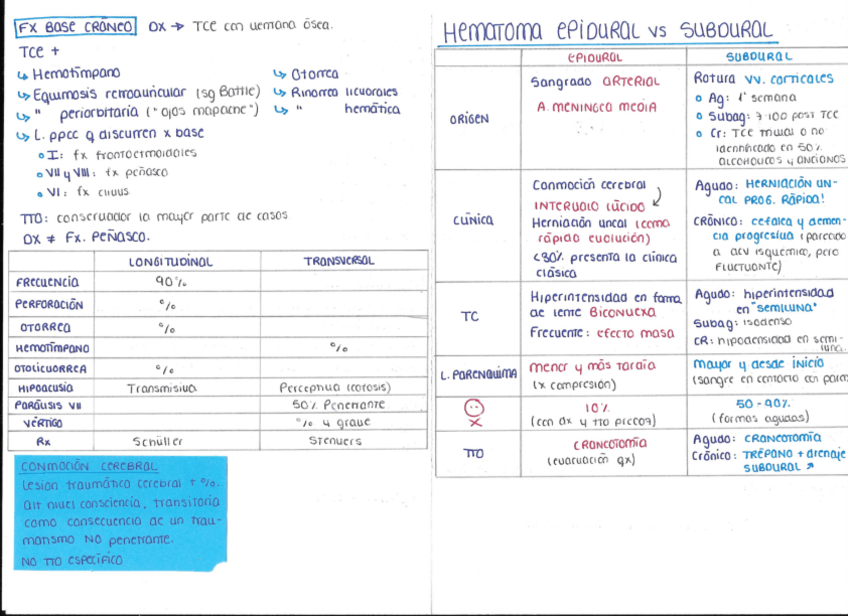 FX BASE CRÁNEO DX → TCE con ventana ósea.
TCE +
↳ Hemotímpano
↳ Equimosis retroauricular (sg Battle)
↳ " periorbitaria ("ojos mapache")
↳ L. ppcc q discurren x base
I: fx frontoetmoidales
VII y VIII: fx peñasco
VI: fx clivus
↳ Otorrea
↳ Rinorrea licuorales
↳ " hemática
TTO: conservador la mayor parte de casos
DX ≠ FX. PEÑASCO.
LONGITUDINAL TRANSVERSAL
FRECUENCIA 90%
PERFORACIÓN %
OTORREA %
HEMOTÍMPANO %
OTOLICUORREA %
HIPOACUSIA Transmisiva Perceptiva (cofosis)
PARÁLISIS VII 50% Penetrante
VÉRTIGO % y grave
RX Schüller Stenvers
CONMOCIÓN CEREBRAL
Lesión traumática cerebral + %.
Alt nivel consciencia, transitoria
como consecuencia de un trau-
matismo NO penetrante.
NO TTO ESPECÍFICO
HEMATOMA EPIDURAL vs SUBDURAL
EPIDURAL SUBDURAL
ORIGEN
Sangrado ARTERIAL
A. MENINGEA MEDIA
Rotura VV. CORTICALES
Ag: 1ª semana
Subag: 7-10d post TCE
Cr: TCE trivial o no
identificado en 50%
ALCOHÓLICOS y ANCIANOS
CLÍNICA
Conmoción cerebral
INTERVALO LÚCIDO
Herniación uncal (coma
rápida evolución)
<30% presenta la clínica
clásica
Agudo: HERNIACIÓN UN-
CAL PROG. RÁPIDA!
CRÓNICO: cefalea y demen-
cia progresiva (parecido
a ACV isquémico, pero
FLUCTUANTE)
TC
Hiperintensidad en forma
de lente BICONVEXA
Frecuente: efecto masa
Agudo: hiperintensidad
en "SEMILUNA"
Subag: isodenso
CR: hipodensidad en semi-
luna.
L. PARÉNQUIMA
menor y más tardía
(x compresión)
Mayor y desde inicio
(sangre en contacto con parén
10%
(con dx y tto precoz)
50-90%
(formas agudas)
TTO
CRANEOTOMÍA
(evacuación qx)
Agudo: CRANEOTOMÍA
Crónico: TRÉPANO + drenaje
SUBDURAL ↗